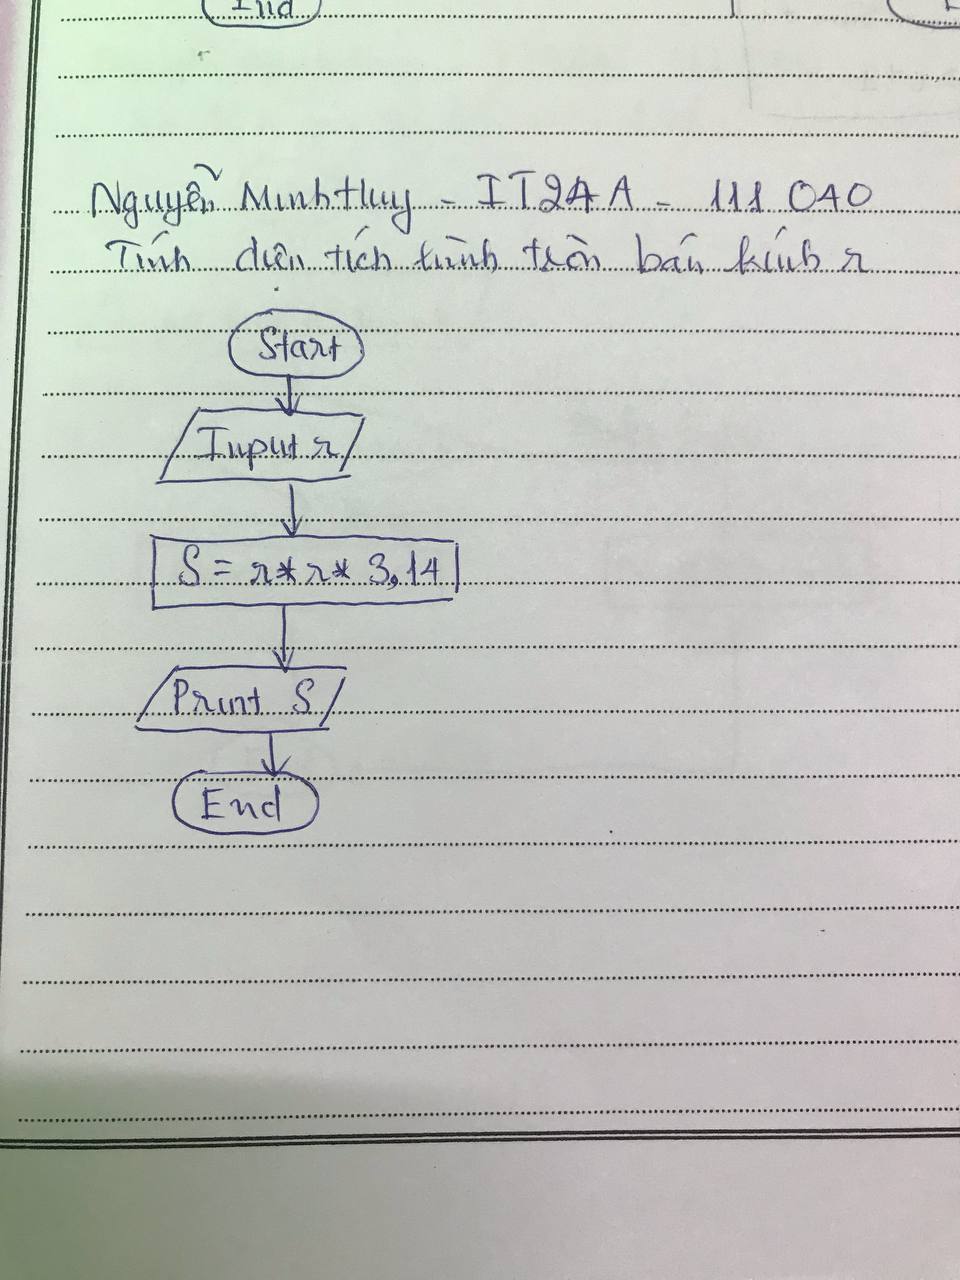 End
Nguyễn Minh Huy - IT24A - 111 040
Tính diện tích hình tròn bán kính r
Start
Input r
S = r * r * 3,14
Print S
End